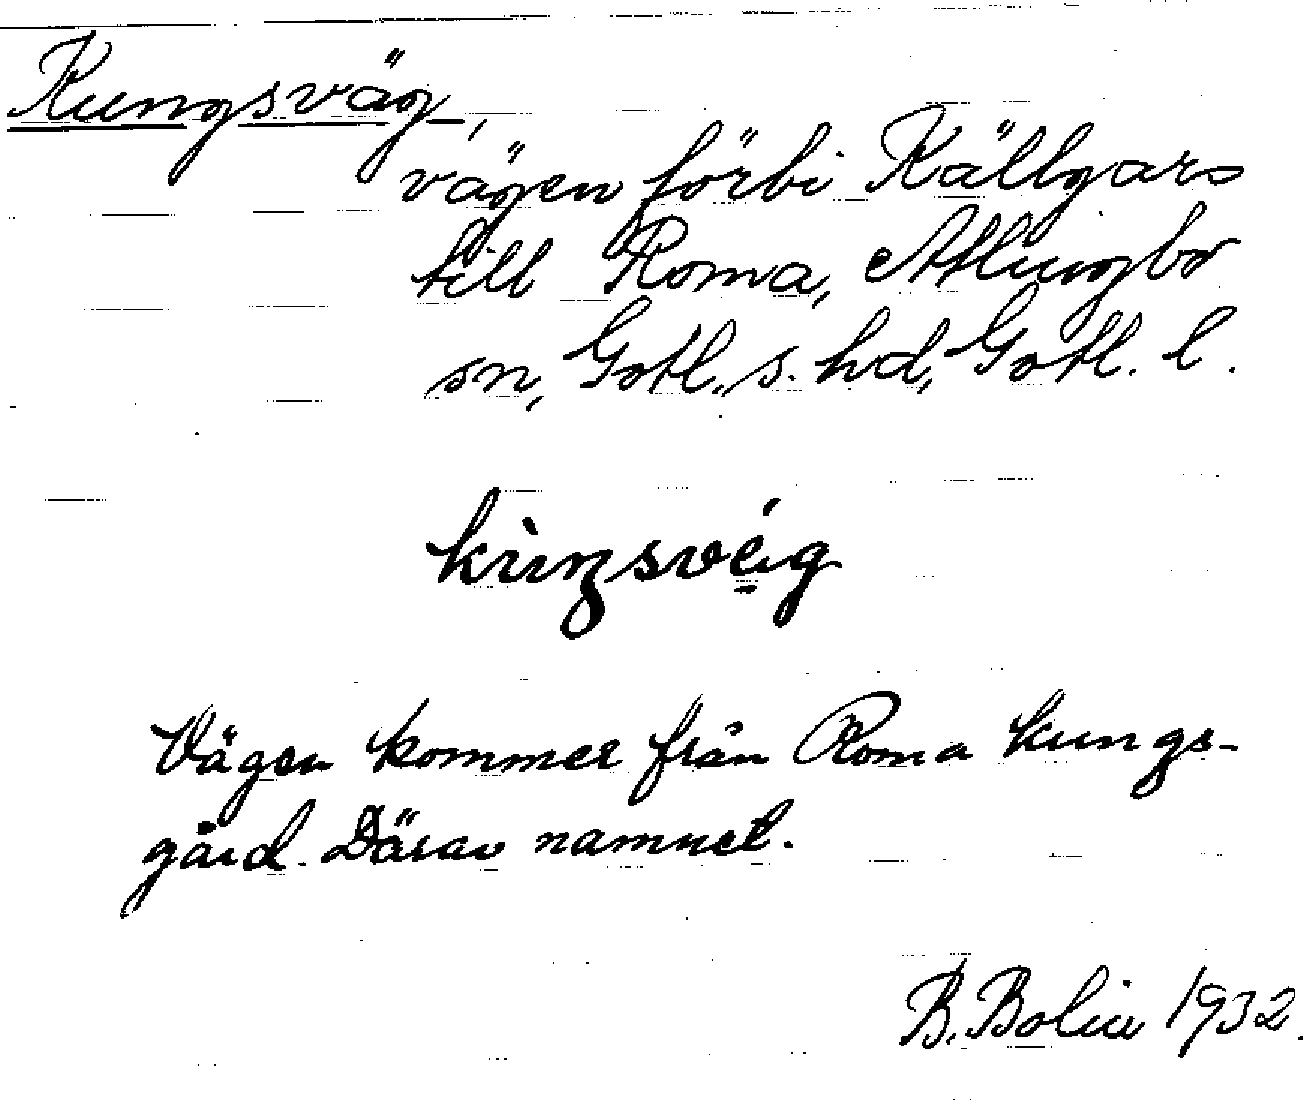 Kungsväg,
vägen förbi Källgars
till Roma, Atlingbo
sn, Gotl:s s. hd, Gotl. l.
kùŋsvég
Vägen kommer från Roma kungs-
gård. Därav namnet.
B. Bolin 1932.